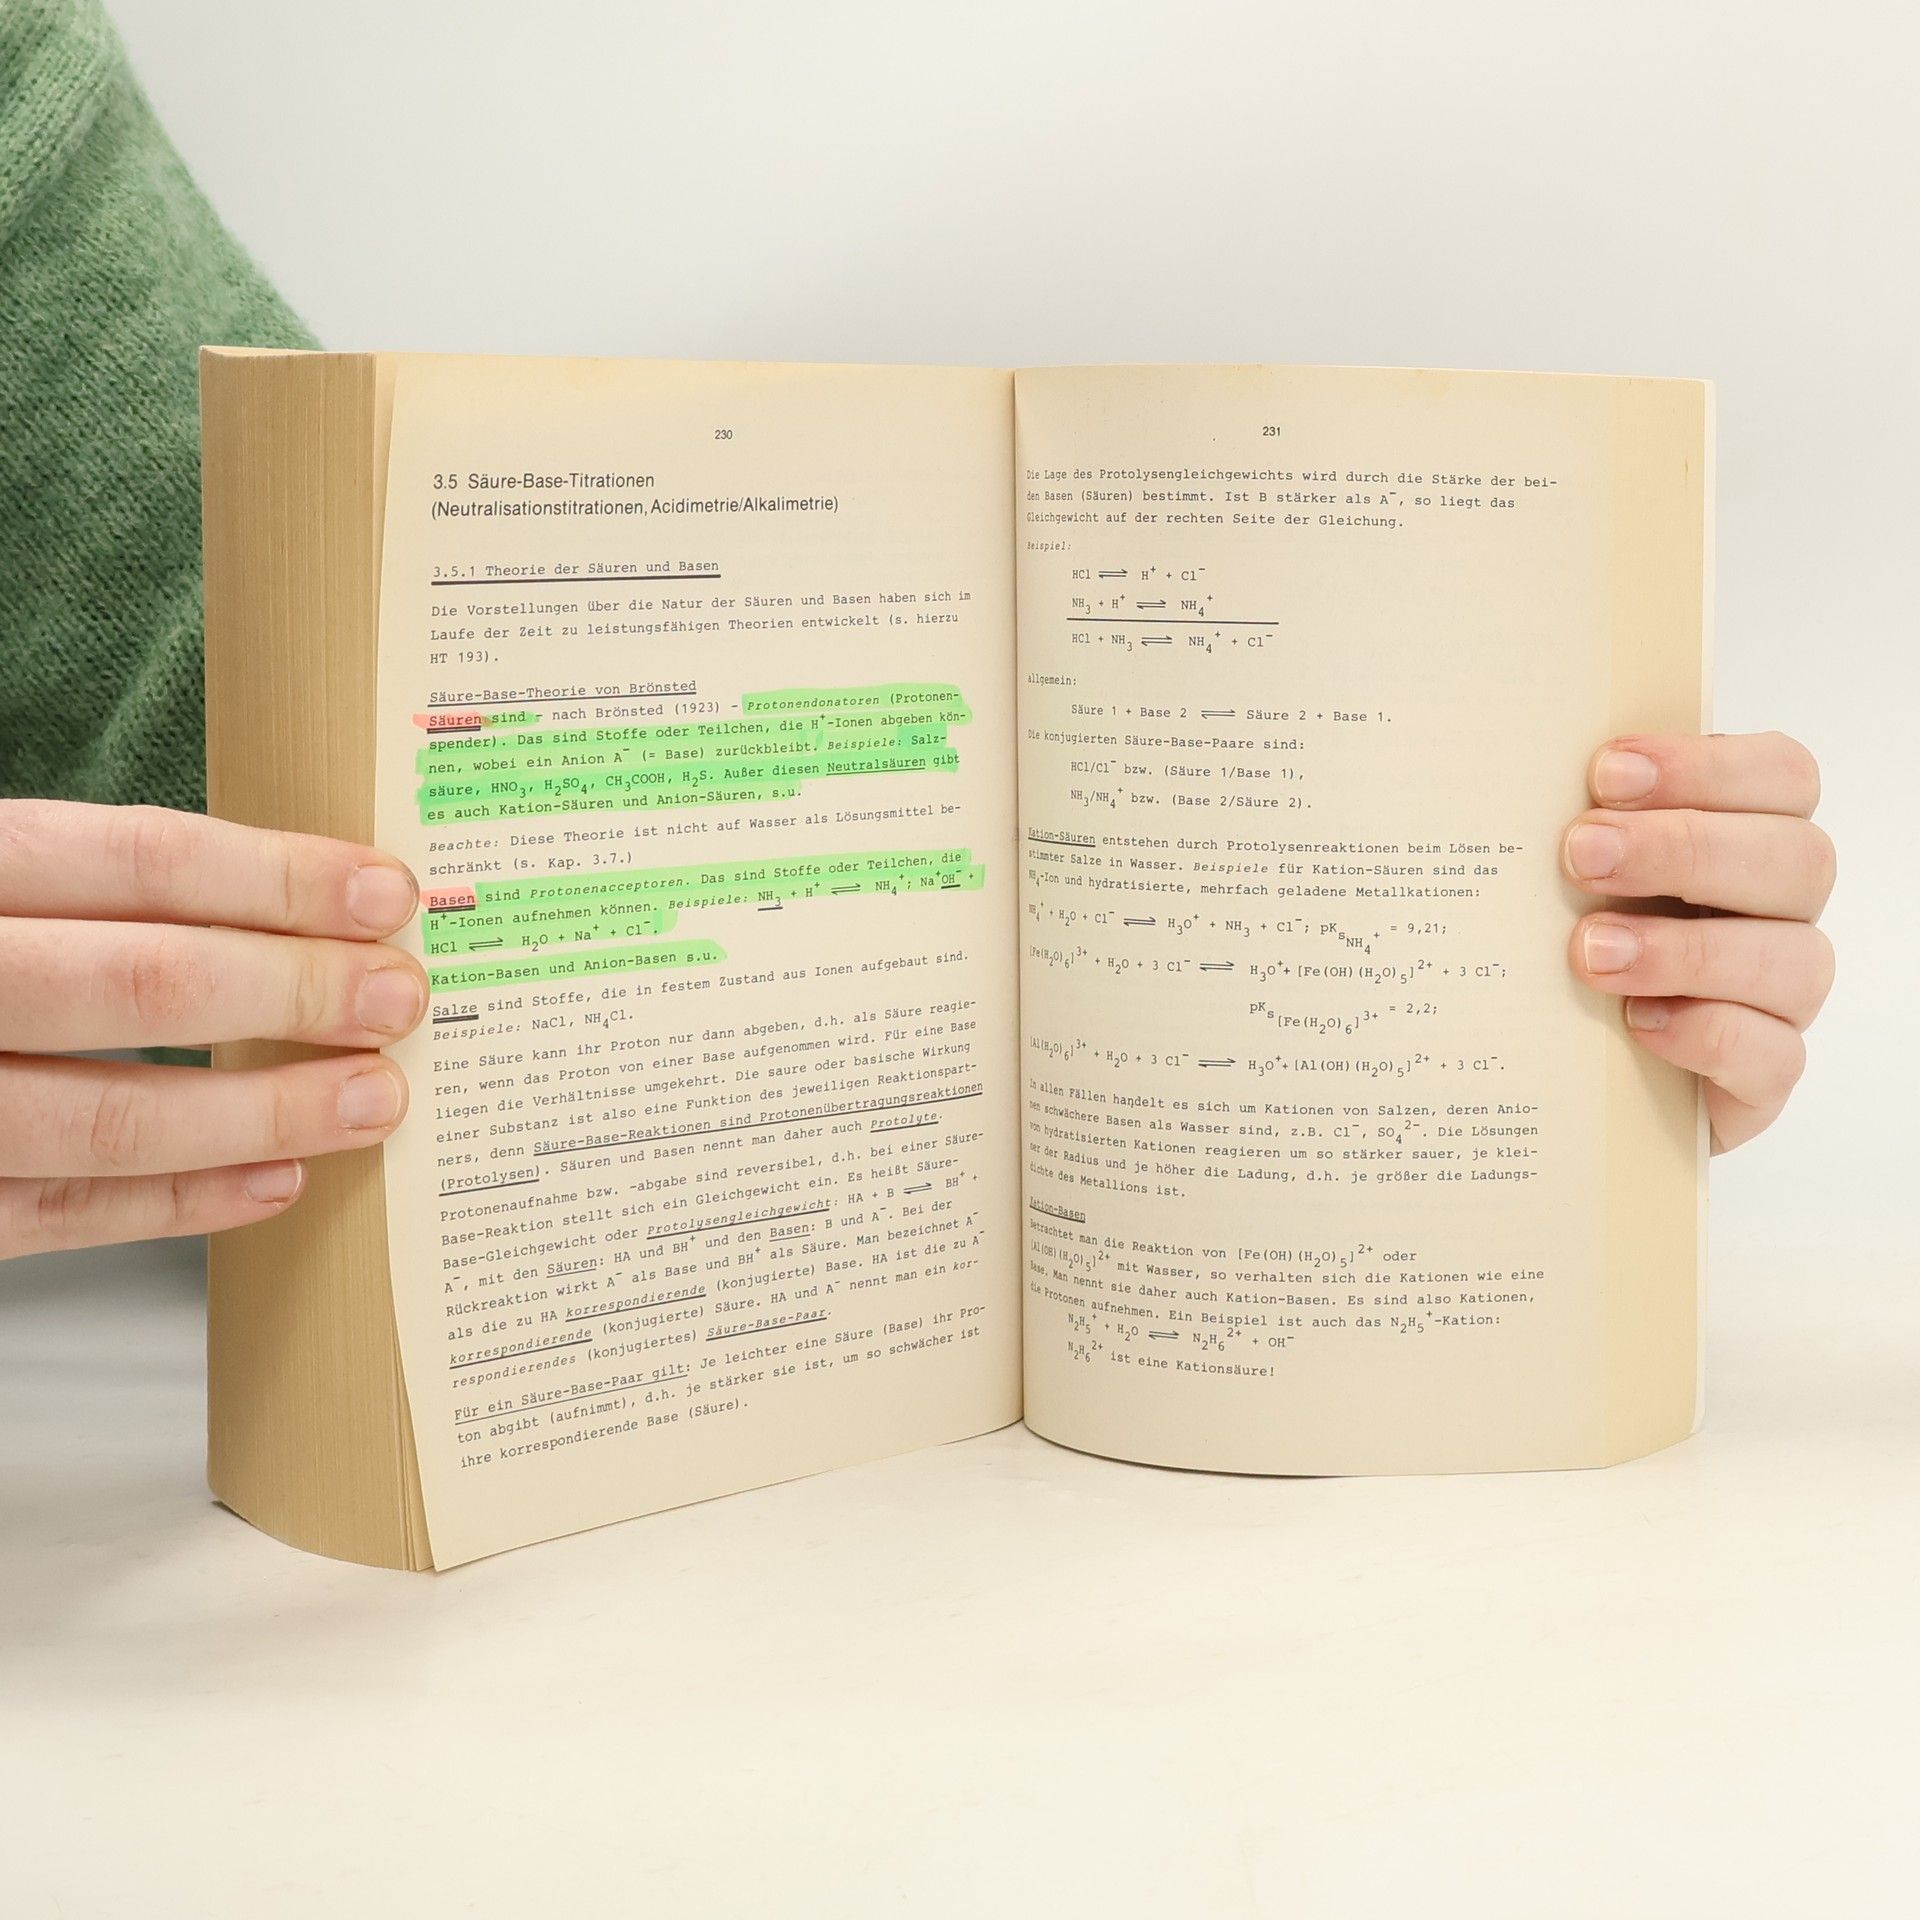 230
3.5 Säure-Base-Titrationen
(Neutralisationstitrationen, Acidimetrie/Alkalimetrie)
3.5.1 Theorie der Säuren und Basen
Die Vorstellungen über die Natur der Säuren und Basen haben sich im
Laufe der Zeit zu leistungsfähigen Theorien entwickelt (s. hierzu
HT 193).
Säure-Base-Theorie von Brönsted
Säuren sind - nach Brönsted (1923) - Protonendonatoren (Protonen-
spender). Das sind Stoffe oder Teilchen, die H⁺-Ionen abgeben kön-
nen, wobei ein Anion A⁻ (= Base) zurückbleibt. Beispiele: Salz-
säure, HNO₃, H₂SO₄, CH₃COOH, H₂S. Außer diesen Neutralsäuren gibt
es auch Kation-Säuren und Anion-Säuren, s.u.
Beachte: Diese Theorie ist nicht auf Wasser als Lösungsmittel be-
schränkt (s. Kap. 3.7.)
Basen sind Protonenacceptoren. Das sind Stoffe oder Teilchen, die
H⁺-Ionen aufnehmen können. Beispiele: NH₃ + H⁺ ⇌ NH₄⁺; Na⁺OH⁻ +
HCl ⇌ H₂O + Na⁺ + Cl⁻.
Kation-Basen und Anion-Basen s.u.
Salze sind Stoffe, die in festem Zustand aus Ionen aufgebaut sind.
Beispiele: NaCl, NH₄Cl.
Eine Säure kann ihr Proton nur dann abgeben, d.h. als Säure reagie-
ren, wenn das Proton von einer Base aufgenommen wird. Für eine Base
liegen die Verhältnisse umgekehrt. Die saure oder basische Wirkung
einer Substanz ist also eine Funktion des jeweiligen Reaktionspart-
ners, denn Säure-Base-Reaktionen sind Protonenübertragungsreaktionen
(Protolysen). Säuren und Basen nennt man daher auch Protolyte.
Protonenaufnahme bzw. -abgabe sind reversibel, d.h. bei einer Säure-
Base-Reaktion stellt sich ein Gleichgewicht ein. Es heißt Säure-
Base-Gleichgewicht oder Protolysengleichgewicht: HA + B ⇌ BH⁺ +
A⁻, mit den Säuren: HA und BH⁺ und den Basen: B und A⁻. Bei der
Rückreaktion wirkt A⁻ als Base und BH⁺ als Säure. Man bezeichnet A⁻
als die zu HA korrespondierende (konjugierte) Base. HA ist die zu A⁻
korrespondierende (konjugierte) Säure. HA und A⁻ nennt man ein kor-
respondierendes (konjugiertes) Säure-Base-Paar.
Für ein Säure-Base-Paar gilt: Je leichter eine Säure (Base) ihr Pro-
ton abgibt (aufnimmt), d.h. je stärker sie ist, um so schwächer ist
ihre korrespondierende Base (Säure).
231
Die Lage des Protolysengleichgewichts wird durch die Stärke der bei-
den Basen (Säuren) bestimmt. Ist B stärker als A⁻, so liegt das
Gleichgewicht auf der rechten Seite der Gleichung.
Beispiel:
HCl ⇌ H⁺ + Cl⁻
NH₃ + H⁺ ⇌ NH₄⁺
HCl + NH₃ ⇌ NH₄⁺ + Cl⁻
allgemein:
Säure 1 + Base 2 ⇌ Säure 2 + Base 1.
Die konjugierten Säure-Base-Paare sind:
HCl/Cl⁻ bzw. (Säure 1/Base 1),
NH₃/NH₄⁺ bzw. (Base 2/Säure 2).
Kation-Säuren entstehen durch Protolysenreaktionen beim Lösen be-
stimmter Salze in Wasser. Beispiele für Kation-Säuren sind das
NH₄-Ion und hydratisierte, mehrfach geladene Metallkationen:
NH₄⁺ + H₂O + Cl⁻ ⇌ H₃O⁺ + NH₃ + Cl⁻; pKs NH₄⁺ = 9,21;
[Fe(H₂O)₆]³⁺ + H₂O + 3 Cl⁻ ⇌ H₃O⁺ + [Fe(OH)(H₂O)₅]²⁺ + 3 Cl⁻;
pKs [Fe(H₂O)₆]³⁺ = 2,2;
[Al(H₂O)₆]³⁺ + H₂O + 3 Cl⁻ ⇌ H₃O⁺ + [Al(OH)(H₂O)₅]²⁺ + 3 Cl⁻.
In allen Fällen handelt es sich um Kationen von Salzen, deren Anio-
nen schwächere Basen als Wasser sind, z.B. Cl⁻, SO₄²⁻. Die Lösungen
von hydratisierten Kationen reagieren um so stärker sauer, je klei-
ner der Radius und je höher die Ladung, d.h. je größer die Ladungs-
dichte des Metallions ist.
Kation-Basen
Betrachtet man die Reaktion von [Fe(OH)(H₂O)₅]²⁺ oder
[Al(OH)(H₂O)₅]²⁺ mit Wasser, so verhalten sich die Kationen wie eine
Base. Man nennt sie daher auch Kation-Basen. Es sind also Kationen,
die Protonen aufnehmen. Ein Beispiel ist auch das N₂H₅⁺-Kation:
N₂H₅⁺ + H₂O ⇌ N₂H₆²⁺ + OH⁻
N₂H₆²⁺ ist eine Kationsäure!